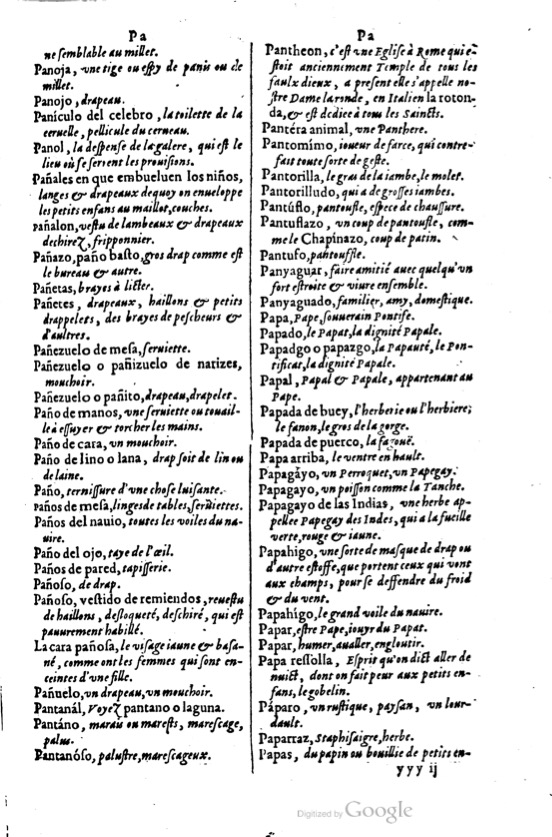 Pa
ne semblable au millet.
Panoja, vne tige ou espy de panis ou de
millet.
Panojo, drapeau.
Panículo del celebro, la toilette de la
ceruelle, pellicule du cerueau.
Panol, la despense de la galere, qui est le
lieu où se serrent les prouisions.
Pañales en que embueluen los niños,
langes & drapeaux dequoy on enueloppe
les petits enfans au maillot, couches.
Pañalon, vestu de lambeaux & drapeaux
dechirez, fripponnier.
Pañazo, paño basto, gros drap comme est
le bureau & autre.
Pañetas, brayes à licter.
Pañetes, drapeaux, haillons & petits
drappelets, des brayes de pescheurs &
d'aultres.
Pañezuelo de mesa, seruiette.
Pañezuelo o pañizuelo de narizes,
mouchoir.
Pañezuelo o pañito, drapeau, drapelet.
Paño de manos, vne seruiette ou touail-
le à essuyer & torcher les mains.
Paño de cara, vn mouchoir.
Paño de lino o lana, drap soit de lin ou
de laine.
Paño, ternissure d'vne chose luisante.
Paños de mesa, linges de tables, seruiettes.
Paños del nauio, toutes les voiles du na-
uire.
Paño del ojo, taye de l'œil.
Paños de pared, tapisserie.
Pañoso, de drap.
Pañoso, vestido de remiendos, reuestu
de haillons, desloqueté, deschiré, qui est
pauurement habillé.
La cara pañosa, le visage iaune & basa-
né, comme ont les femmes qui sont en-
ceintes d'vne fille.
Pañuelo, vn drapeau, vn mouchoir.
Pantanál, Voyez pantano o laguna.
Pantáno, marais ou marests, marescage,
palus.
Pantanóso, palustre, marescageux.
Pa
Pantheon, c'est vne Eglise à Rome qui e-
stoit anciennement Temple de tous les
faulx dieux, a present elle s'appelle no-
stre Dame la ronde, en Italien la roton-
da, & est dediee à tous les Saincts.
Pantéra animal, vne Panthere.
Pantomimo, ioueur de farce, qui contre-
fait toute sorte de geste.
Pantorilla, le gras de la iambe, le molet.
Pantorilludo, qui a de grosses iambes.
Pantúflo, pantoufle, espece de chaussure.
Pantuflazo, vn coup de pantoufle, com-
me le Chapinazo, coup de patin.
Pantufo, pantouffle.
Panyaguar, faire amitié auec quelqu'vn
fort estroite & viure ensemble.
Panyaguado, familier, amy, domestique.
Papa, Pape, souuerain Pontife.
Papado, le Papat, la dignité Papale.
Papadgo o papazgo, la Papauté, le Pon-
tificat, la dignité Papale.
Papal, Papal & Papale, appartenant au
Pape.
Papada de buey, l'herberie ou l'herbiere;
le fanon, le gros de la gorge.
Papada de puerco, la fagouë.
Papa arriba, le ventre en hault.
Papagáyo, vn Perroquet, vn Papegay.
Papagayo, vn poisson comme la Tanche.
Papagayo de las Indias, vne herbe ap-
pellee Papegay des Indes, qui a la fueille
verte, rouge & iaune.
Papahigo, vne sorte de masque de drap ou
d'autre estoffe, que portent ceux qui vont
aux champs, pour se deffendre du froid
& du vent.
Papahígo, le grand voile du nauire.
Papar, estre Pape, iouyr du Papat.
Papar, humer, aualler, engloutir.
Papa ressolla, Esprit qu'on dict aller de
nuict, dont on fait peur aux petits en-
fans, le gobelin.
Páparo, vn rustique, paysan, vn lour-
dault.
Paparraz, Staphisaigre, herbe.
Papas, du papin ou bouillie de petits en-
yyy ij
Digitized by Google